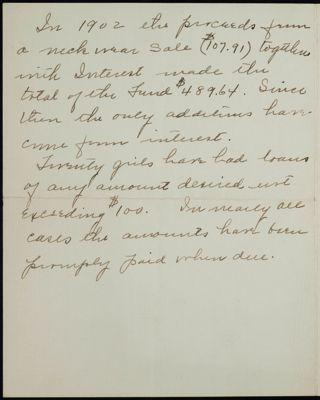 In 1902 the proceeds from
a neck wear sale ($107.91) together
with Interest made the
total of the Fund $489.64. Since
then the only additions have
come from interest.
Twenty girls have had loans
of any amount desired not
exceeding $100. In nearly all
cases the amounts have been
promply paid when due.